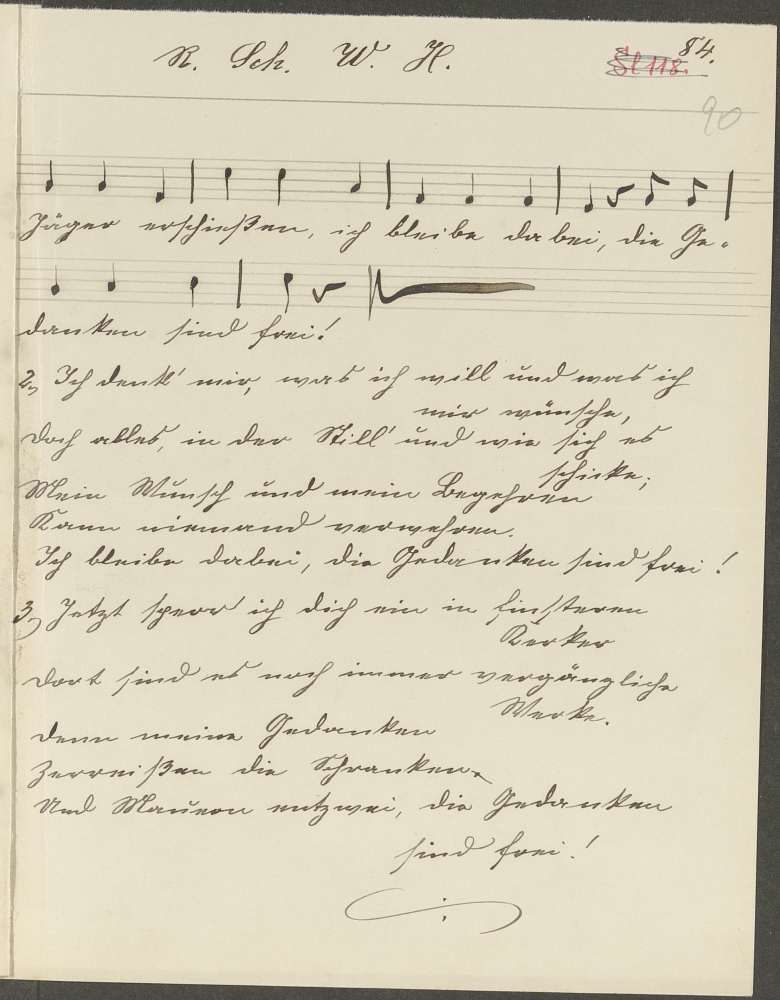 R. Sch. W. H.
84.
Sl 118.
90
Jäger erschießen, ich bleibe dabei, die Ge-
danken sind frei!
2., Ich denk' mir, was ich will und was ich
mir wünsche,
doch alles, in der Still' und wie sich es
schicke;
Mein Wunsch und mein Begehren
Kann niemand verwehren.
Ich bleibe dabei, die Gedanken sind frei!
3.) Jetzt sperr' ich dich ein in finsteren
Kerker
dort sind es noch immer vergängliche
Werke.
denn meine Gedanken
Zerreißen die Schranken.
Und Mauern entzwei, die Gedanken
sind frei!